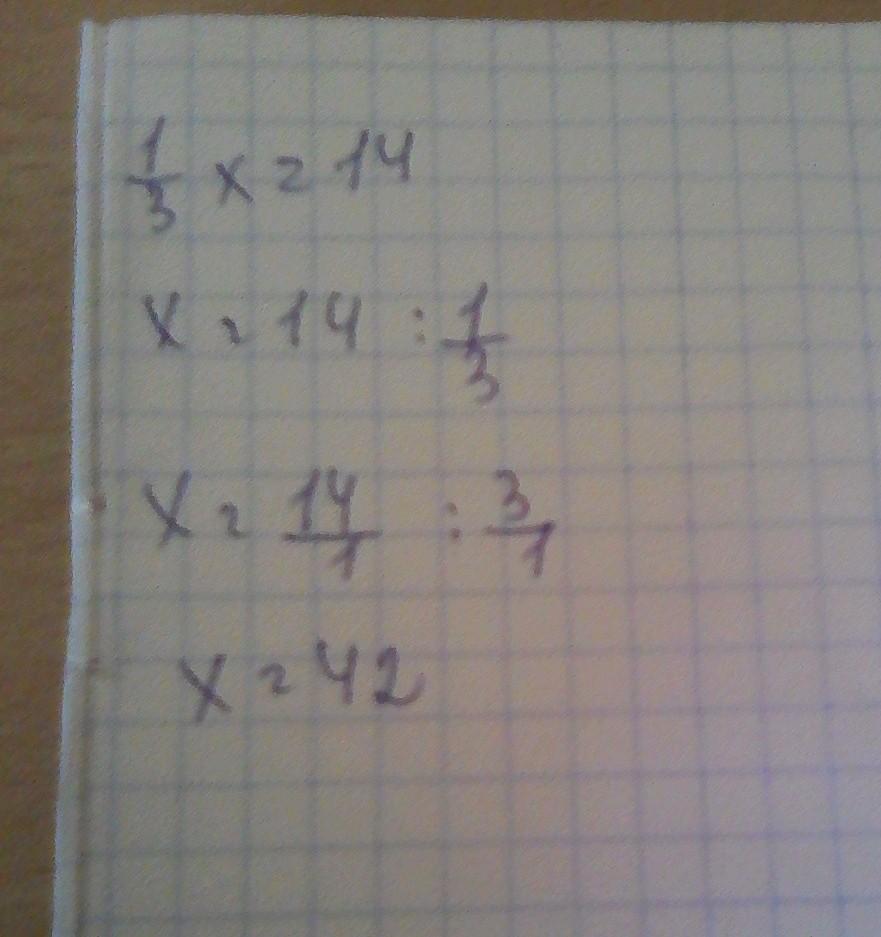 1/3 x = 14
x = 14 : 1/3
x = 14/1 : 3/1
x = 42